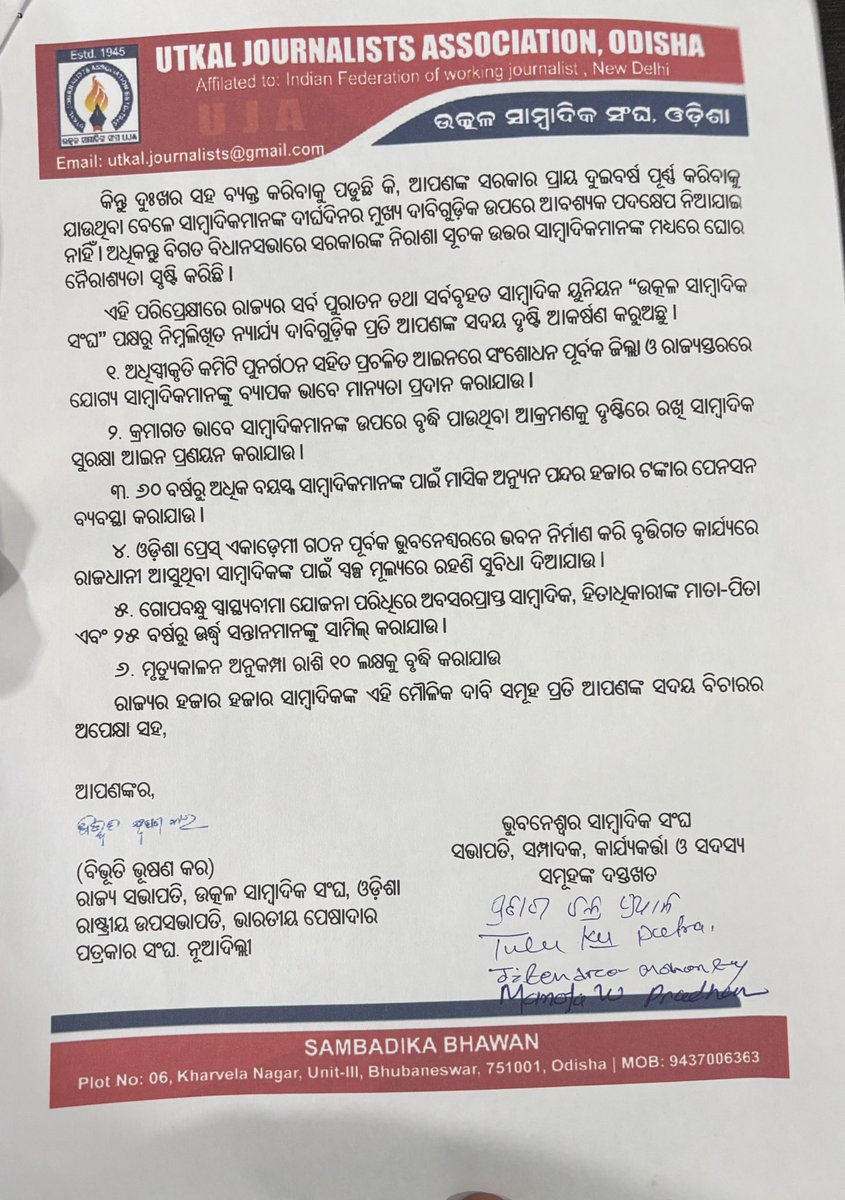 Estd. 1945
UTKAL JOURNALISTS ASSOCIATION, ODISHA
Affilated to: Indian Federation of working journalist , New Delhi
UJA
ଉତ୍କଳ ସାମ୍ବାଦିକ ସଂଘ, ଓଡ଼ିଶା
ଉତ୍କଳ ସାମ୍ବାଦିକ ସଂଘ UJA
Email: utkal.journalists@gmail.com
କିନ୍ତୁ ଦୁଃଖର ସହ ବ୍ୟକ୍ତ କରିବାକୁ ପଡୁଛି କି, ଆପଣଙ୍କ ସରକାର ପ୍ରାୟ ଦୁଇବର୍ଷ ପୂର୍ଣ୍ଣ କରିବାକୁ
ଯାଉଥିବା ବେଳେ ସାମ୍ବାଦିକମାନଙ୍କ ଦୀର୍ଘଦିନର ମୁଖ୍ୟ ଦାବିଗୁଡ଼ିକ ଉପରେ ଆବଶ୍ୟକ ପଦକ୍ଷେପ ନିଆଯାଇ
ନାହିଁ । ଅଧିକନ୍ତୁ ବିଗତ ବିଧାନସଭାରେ ସରକାରଙ୍କ ନିରାଶା ସୂଚକ ଉତ୍ତର ସାମ୍ବାଦିକମାନଙ୍କ ମଧ୍ୟରେ ଘୋର
ନୈରାଶ୍ୟତା ସୃଷ୍ଟି କରିଛି ।
ଏହି ପରିପ୍ରେକ୍ଷୀରେ ରାଜ୍ୟର ସର୍ବ ପୁରାତନ ତଥା ସର୍ବବୃହତ ସାମ୍ବାଦିକ ୟୁନିୟନ “ଉତ୍କଳ ସାମ୍ବାଦିକ
ସଂଘ” ପକ୍ଷରୁ ନିମ୍ନଲିଖିତ ନ୍ୟାର୍ଯ୍ୟ ଦାବିଗୁଡ଼ିକ ପ୍ରତି ଆପଣଙ୍କ ସଦୟ ଦୃଷ୍ଟି ଆକର୍ଷଣ କରୁଅଛୁ ।
୧. ଅଧିସ୍ୱୀକୃତି କମିଟି ପୁନର୍ଗଠନ ସହିତ ପ୍ରଚଳିତ ଆଇନରେ ସଂଶୋଧନ ପୂର୍ବକ ଜିଲ୍ଲା ଓ ରାଜ୍ୟସ୍ତରରେ
ଯୋଗ୍ୟ ସାମ୍ବାଦିକମାନଙ୍କୁ ବ୍ୟାପକ ଭାବେ ମାନ୍ୟତା ପ୍ରଦାନ କରାଯାଉ ।
୨. କ୍ରମାଗତ ଭାବେ ସାମ୍ବାଦିକମାନଙ୍କ ଉପରେ ବୃଦ୍ଧି ପାଉଥିବା ଆକ୍ରମଣକୁ ଦୃଷ୍ଟିରେ ରଖି ସାମ୍ବାଦିକ
ସୁରକ୍ଷା ଆଇନ ପ୍ରଣୟନ କରାଯାଉ ।
୩. ୬୦ ବର୍ଷରୁ ଅଧିକ ବୟସ୍କ ସାମ୍ବାଦିକମାନଙ୍କ ପାଇଁ ମାସିକ ଅନ୍ୟୁନ ପନ୍ଦର ହଜାର ଟଙ୍କାର ପେନସନ
ବ୍ୟବସ୍ଥା କରାଯାଉ ।
୪. ଓଡ଼ିଶା ପ୍ରେସ୍ ଏକାଡ଼େମୀ ଗଠନ ପୂର୍ବକ ଭୁବନେଶ୍ୱରରେ ଭବନ ନିର୍ମାଣ କରି ବୃତ୍ତିଗତ କାର୍ଯ୍ୟରେ
ରାଜଧାନୀ ଆସୁଥିବା ସାମ୍ବାଦିକଙ୍କ ପାଇଁ ସ୍ୱଳ୍ପ ମୂଲ୍ୟରେ ରହଣି ସୁବିଧା ଦିଆଯାଉ ।
୫. ଗୋପବନ୍ଧୁ ସ୍ୱାସ୍ଥ୍ୟବୀମା ଯୋଜନା ପରିଧିରେ ଅବସରପ୍ରାପ୍ତ ସାମ୍ବାଦିକ, ହିତାଧିକାରୀଙ୍କ ମାତା-ପିତା
ଏବଂ ୨୫ ବର୍ଷରୁ ଊର୍ଦ୍ଧ୍ୱ ସନ୍ତାନମାନଙ୍କୁ ସାମିଲ୍ କରାଯାଉ ।
୬. ମୃତ୍ୟୁକାଳନ ଅନୁକମ୍ପା ରାଶି ୧୦ ଲକ୍ଷକୁ ବୃଦ୍ଧି କରାଯାଉ
ରାଜ୍ୟର ହଜାର ହଜାର ସାମ୍ବାଦିକଙ୍କ ଏହି ମୌଳିକ ଦାବି ସମୂହ ପ୍ରତି ଆପଣଙ୍କ ସଦୟ ବିଚାରର
ଅପେକ୍ଷା ସହ,
ଆପଣଙ୍କର,
(ବିଭୂତି ଭୂଷଣ କର)
ରାଜ୍ୟ ସଭାପତି, ଉତ୍କଳ ସାମ୍ବାଦିକ ସଂଘ, ଓଡ଼ିଶା
ରାଷ୍ଟ୍ରୀୟ ଉପସଭାପତି, ଭାରତୀୟ ପେଷାଦାର
ପତ୍ରକାର ସଂଘ. ନୂଆଦିଲ୍ଲୀ
ଭୁବନେଶ୍ୱର ସାମ୍ବାଦିକ ସଂଘ
ସଭାପତି, ସମ୍ପାଦକ, କାର୍ଯ୍ୟକର୍ତ୍ତା ଓ ସଦସ୍ୟ
ସମୂହଙ୍କ ଦସ୍ତଖତ
Tulu Ku Patra.
Jitendra Mohanty
Pradhan
SAMBADIKA BHAWAN
Plot No: 06, Kharvela Nagar, Unit-III, Bhubaneswar, 751001, Odisha | MOB: 9437006363